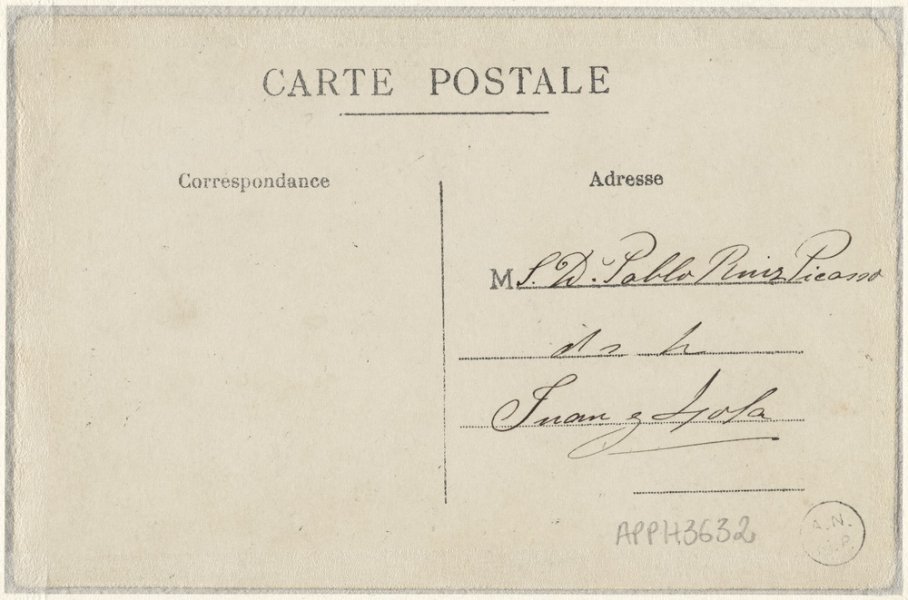 CARTE POSTALE
Correspondance
Adresse
M. S. D. Pablo Ruiz Picasso
Juan y Lola
APPH3632
A.N.